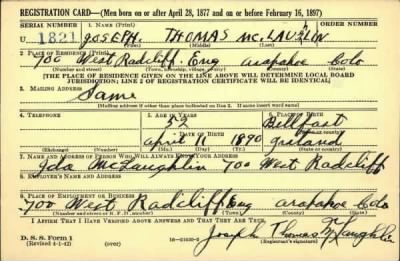 REGISTRATION CARD—(Men born on or after April 28, 1877 and on or before February 16, 1897)
SERIAL NUMBER 1. NAME (Print) ORDER NUMBER
U 1821 JOSEPH. THOMAS McLAUGLIN
(First) (Middle) (Last)
2. PLACE OF RESIDENCE (Print)
700 West Radcliff, Eng arapahoe Colo
(Number and street) (Town, township, village, or city) (County) (State)
[THE PLACE OF RESIDENCE GIVEN ON THE LINE ABOVE WILL DETERMINE LOCAL BOARD
JURISDICTION; LINE 2 OF REGISTRATION CERTIFICATE WILL BE IDENTICAL]
3. MAILING ADDRESS
Same
[Mailing address if other than place indicated on line 2. If same insert word same]
4. TELEPHONE 5. AGE IN YEARS 6. PLACE OF BIRTH
52 Bellfast
DATE OF BIRTH (Town or county)
april 11 1890 Ireland
(Exchange) (Number) (Mo.) (Day) (Yr.) (State or country)
7. NAME AND ADDRESS OF PERSON WHO WILL ALWAYS KNOW YOUR ADDRESS
Ida McLaughlin 700 West Radcliff
8. EMPLOYER'S NAME AND ADDRESS
9. PLACE OF EMPLOYMENT OR BUSINESS
700 West Radcliff Eng arapahoe Colo
(Number and street or R. F. D. number) (Town) (County) (State)
I AFFIRM THAT I HAVE VERIFIED ABOVE ANSWERS AND THAT THEY ARE TRUE.
D. S. S. Form 1
(Revised 4-1-42) (over)
Joseph Thomas McLaughlin
(Registrant's signature)